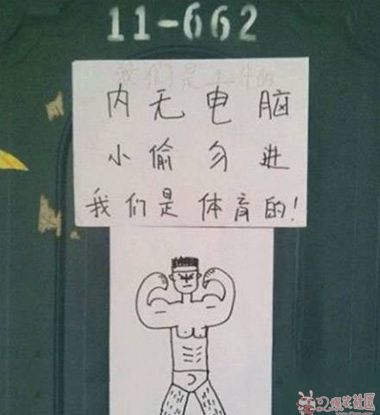 11-662
我们是
内无电脑
小偷勿进
我们是体育的!